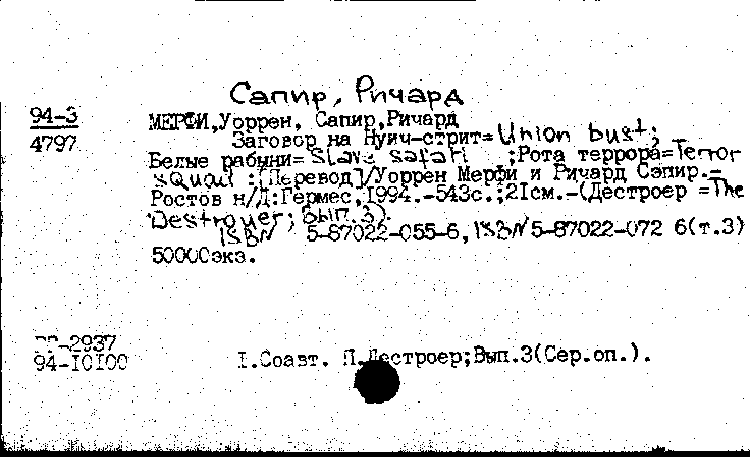 Сапир, Ричард
94-3
4797
МЕРФИ,Уоррен, Сапир,Ричард
Заговор на Нуич-стрит=Union bust;
Белые рабыни=Slave safari ;Рота террора=Terror
squad :[Перевод]/Уоррен Мерфи и Ричард Сэпир.-
Ростов н/Д:Гермес,1994.-543с.;21см.-(Дестроер =The
Destroyer; Вып.3).
ISBN 5-87022-055-6,ISBN 5-87022-072 6(т.3)
50000экз.
-2937
94-10100
I.Соавт. П.Дестроер;Вып.3(Сер.оп.).